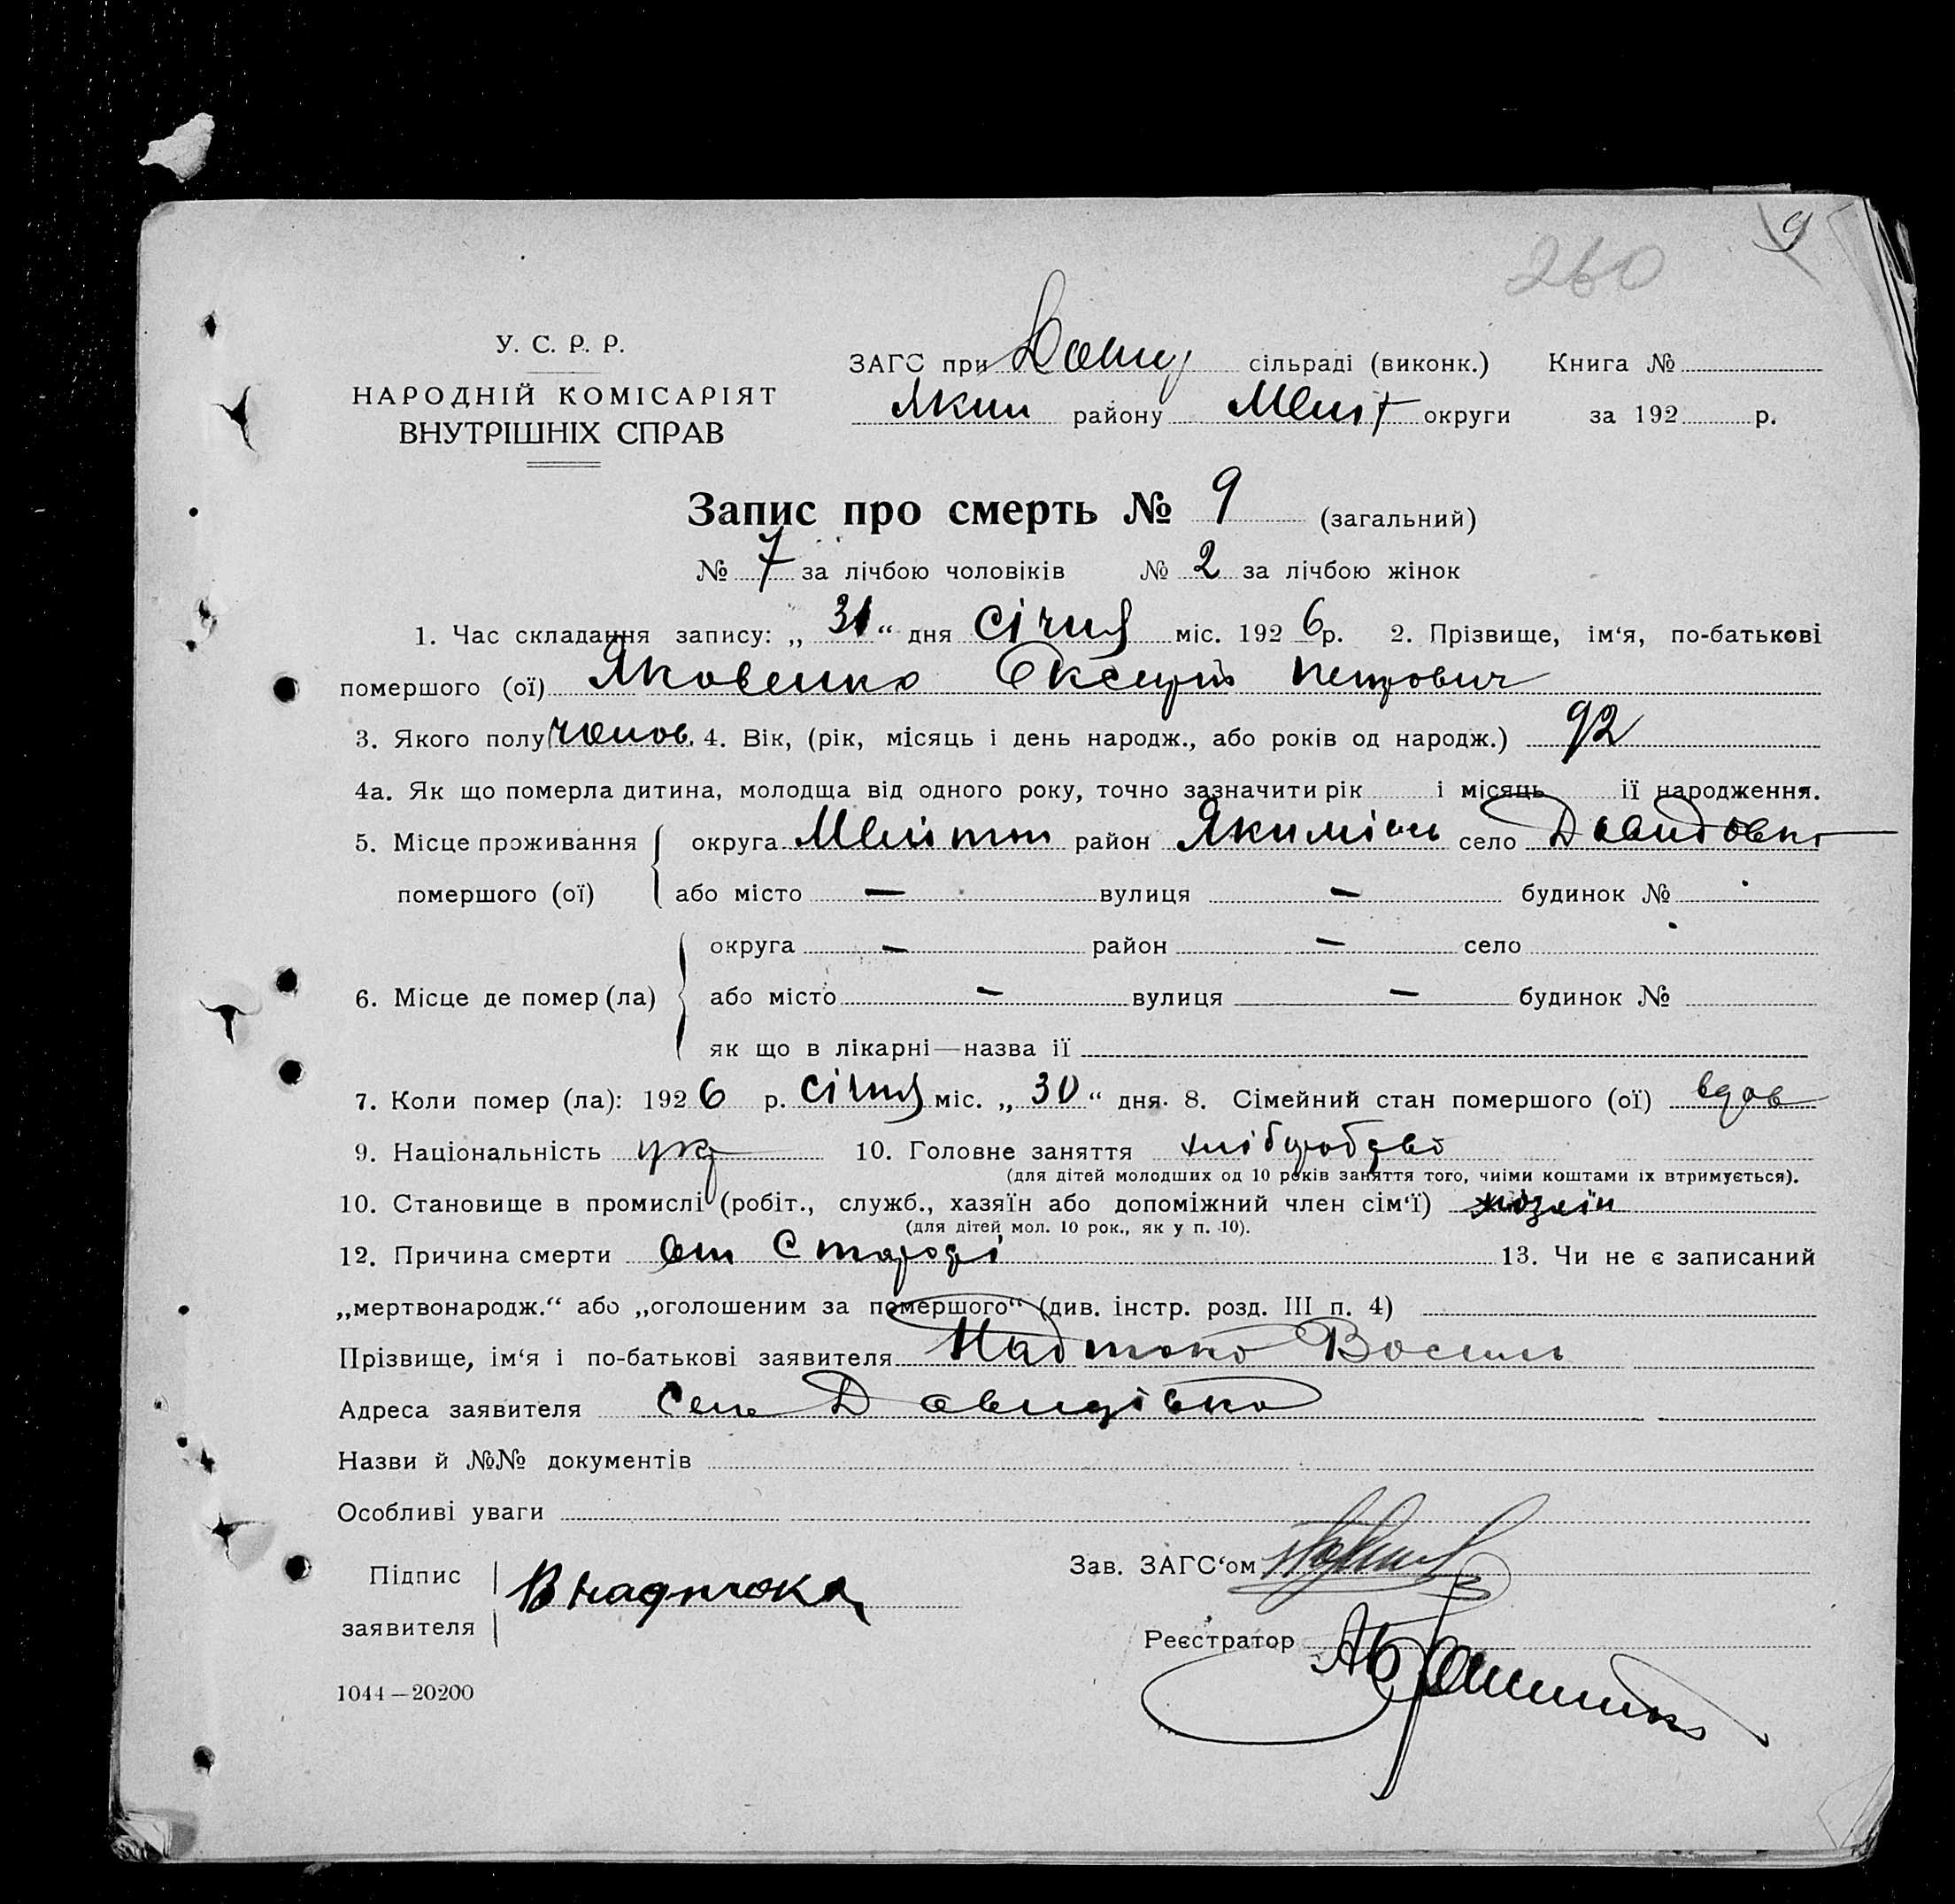 9
260
У. С. Р. Р.
НАРОДНІЙ КОМІСАРІЯТ
ВНУТРІШНІХ СПРАВ
ЗАГС при Давид сільраді (виконк.) Книга №
Яким району Меліт округи за 192 р.
Запис про смерть № 9 (загальний)
№ 7 за лічбою чоловіків № 2 за лічбою жінок
1. Час складання запису: „ 31 “ дня січня міс. 192 6 р. 2. Прізвище, ім‘я, по-батькові
помершого (ої) Яковенко Оксентій Петрович
3. Якого полу чолов. 4. Вік, (рік, місяць і день народж., або років од народж.) 92
4а. Як що померла дитина, молодща від одного року, точно зазначити рік і місяць її народження.
5. Місце проживання округа Меліт район Якимівсь село Давидовка
помершого (ої) або місто — вулиця — будинок №
округа — район — село
6. Місце де помер (ла) або місто — вулиця — будинок №
як що в лікарні—назва її
7. Коли помер (ла): 192 6 р. січня міс. „ 30 “ дня. 8. Сімейний стан помершого (ої) вдов
9. Національність укр 10. Головне заняття хліборобство
(для дітей молодших од 10 років заняття того, чиїми коштами їх втримується).
10. Становище в промислі (робіт., служб., хазяїн або допоміжний член сім‘ї) хозяїн
(для дітей мол. 10 рок., як у п. 10).
12. Причина смерти от старості 13. Чи не є записаний
„мертвонародж.“ або „оголошеним за помершого“ (див. інстр. розд. III п. 4)
Прізвище, ім‘я і по-батькові заявителя Надточо Василь
Адреса заявителя село Давидівка
Назви й №№ документів
Особливі уваги
Підпис заявителя В Надточка
Зав. ЗАГС‘ом
Реєстратор
1044—20200